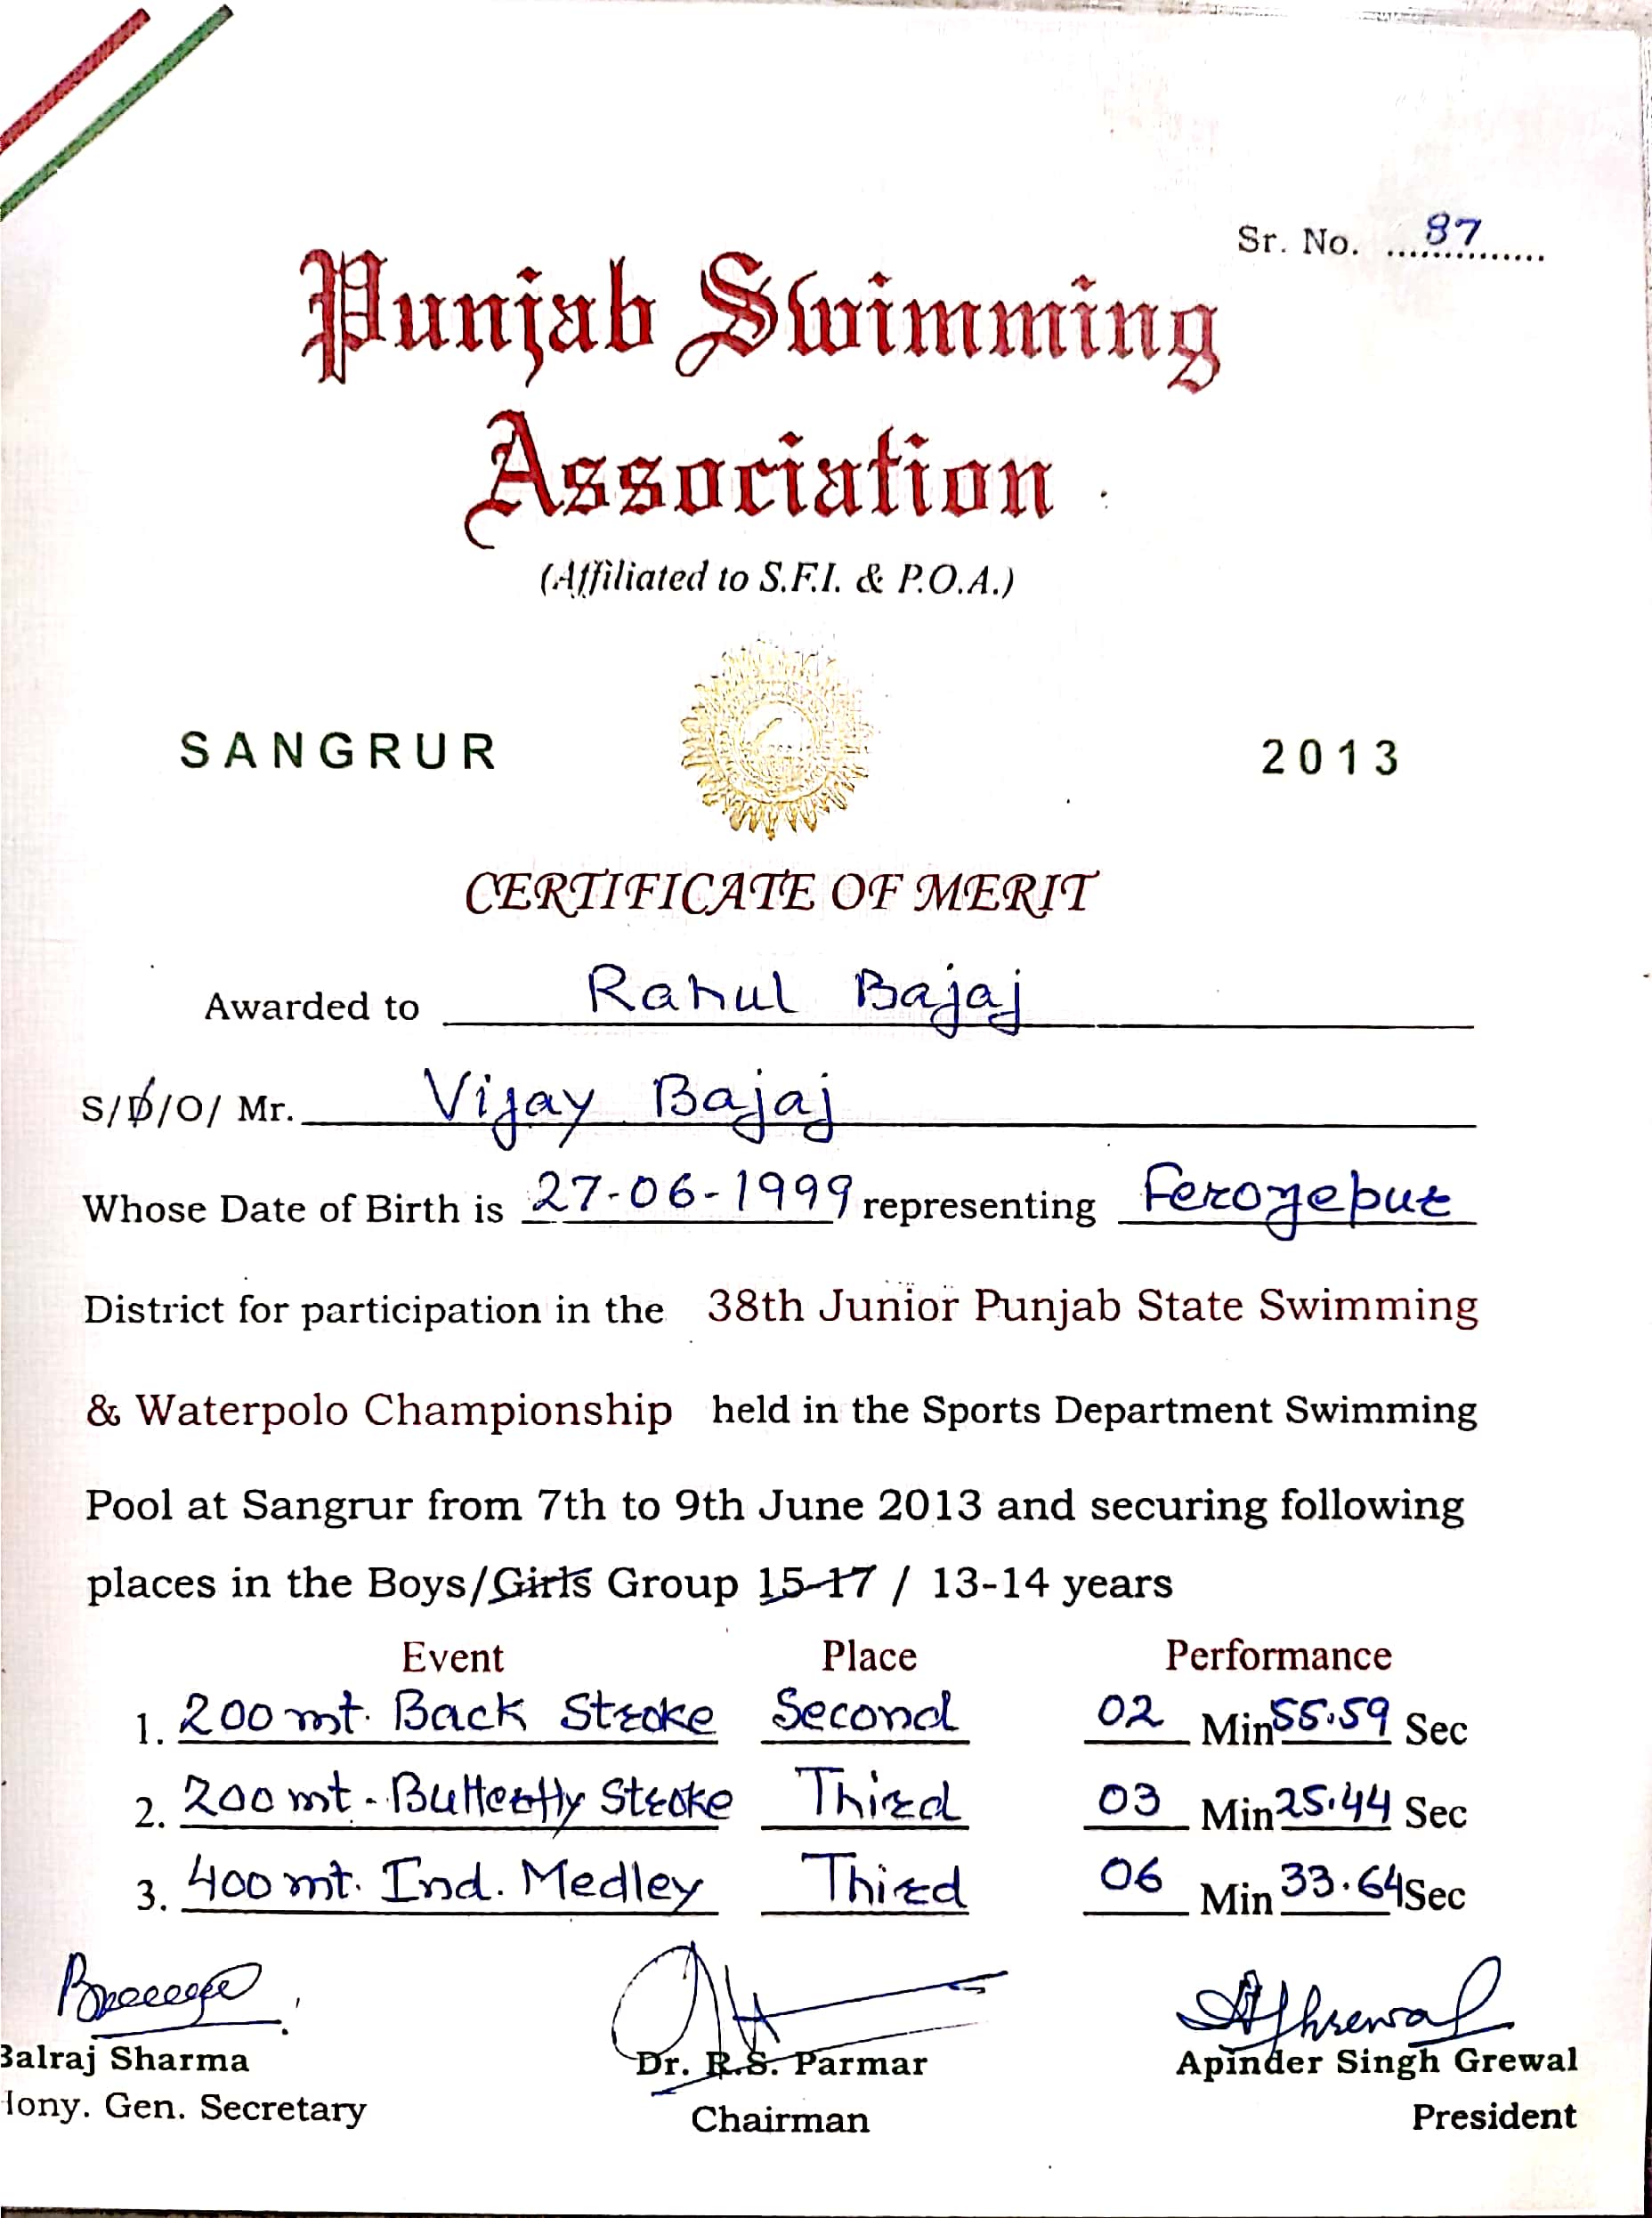 Sr. No. 87
Punjab Swimming
Association
(Affiliated to S.F.I. & P.O.A.)
SANGRUR 2013
CERTIFICATE OF MERIT
Awarded to Rahul Bajaj
S/D/O/ Mr. Vijay Bajaj
Whose Date of Birth is 27-06-1999 representing Ferozepur
District for participation in the 38th Junior Punjab State Swimming
& Waterpolo Championship held in the Sports Department Swimming
Pool at Sangrur from 7th to 9th June 2013 and securing following
places in the Boys/Girls Group 15-17 / 13-14 years
Event Place Performance
1. 200 mt. Back Stroke Second 02 Min 55.59 Sec
2. 200 mt - Butterfly Stroke Third 03 Min 25.44 Sec
3. 400 mt. Ind. Medley Third 06 Min 33.64 Sec
Balraj Sharma Dr. R.S. Parmar Apinder Singh Grewal
Hony. Gen. Secretary Chairman President